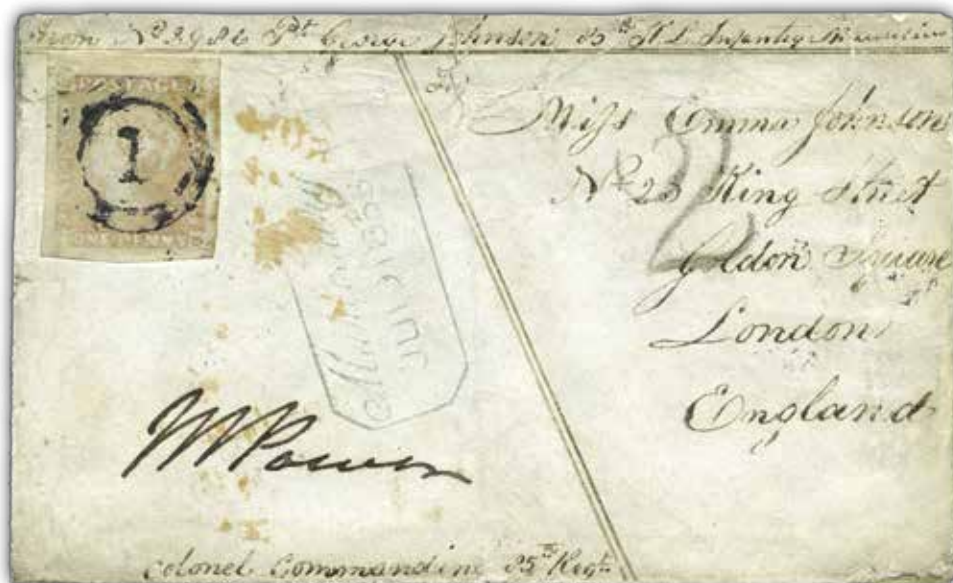 From No 2986 Pt George Johnson 85th K L Infantry Mauritius
POSTAGE
1
ONE PENNY
To
Miss Emma Johnson
No 23 King Street
Golden Square
London
England
2
MAURITIUS
W Power
Colonel Commanding 85th Regt